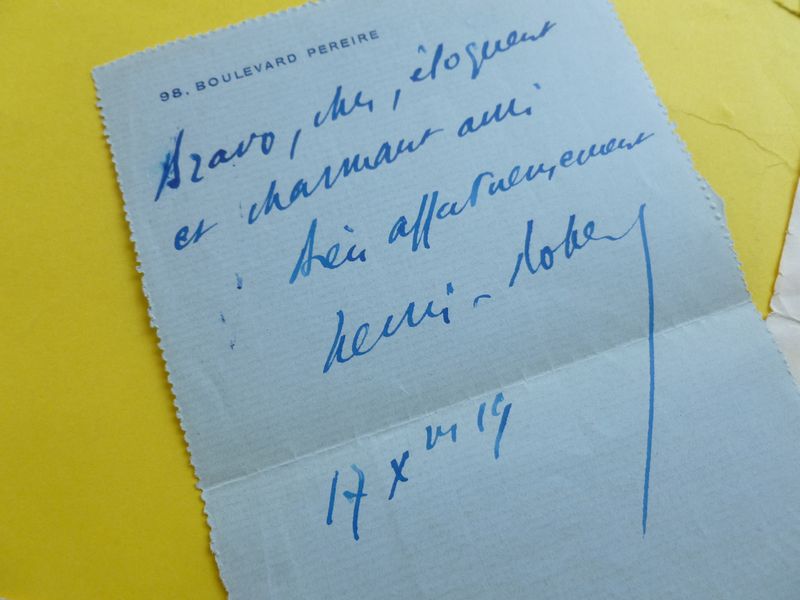 98. BOULEVARD PEREIRE
Bravo, cher, éloquent
et charmant ami
bien affectueusement
henri-robert
17 Xbre 19